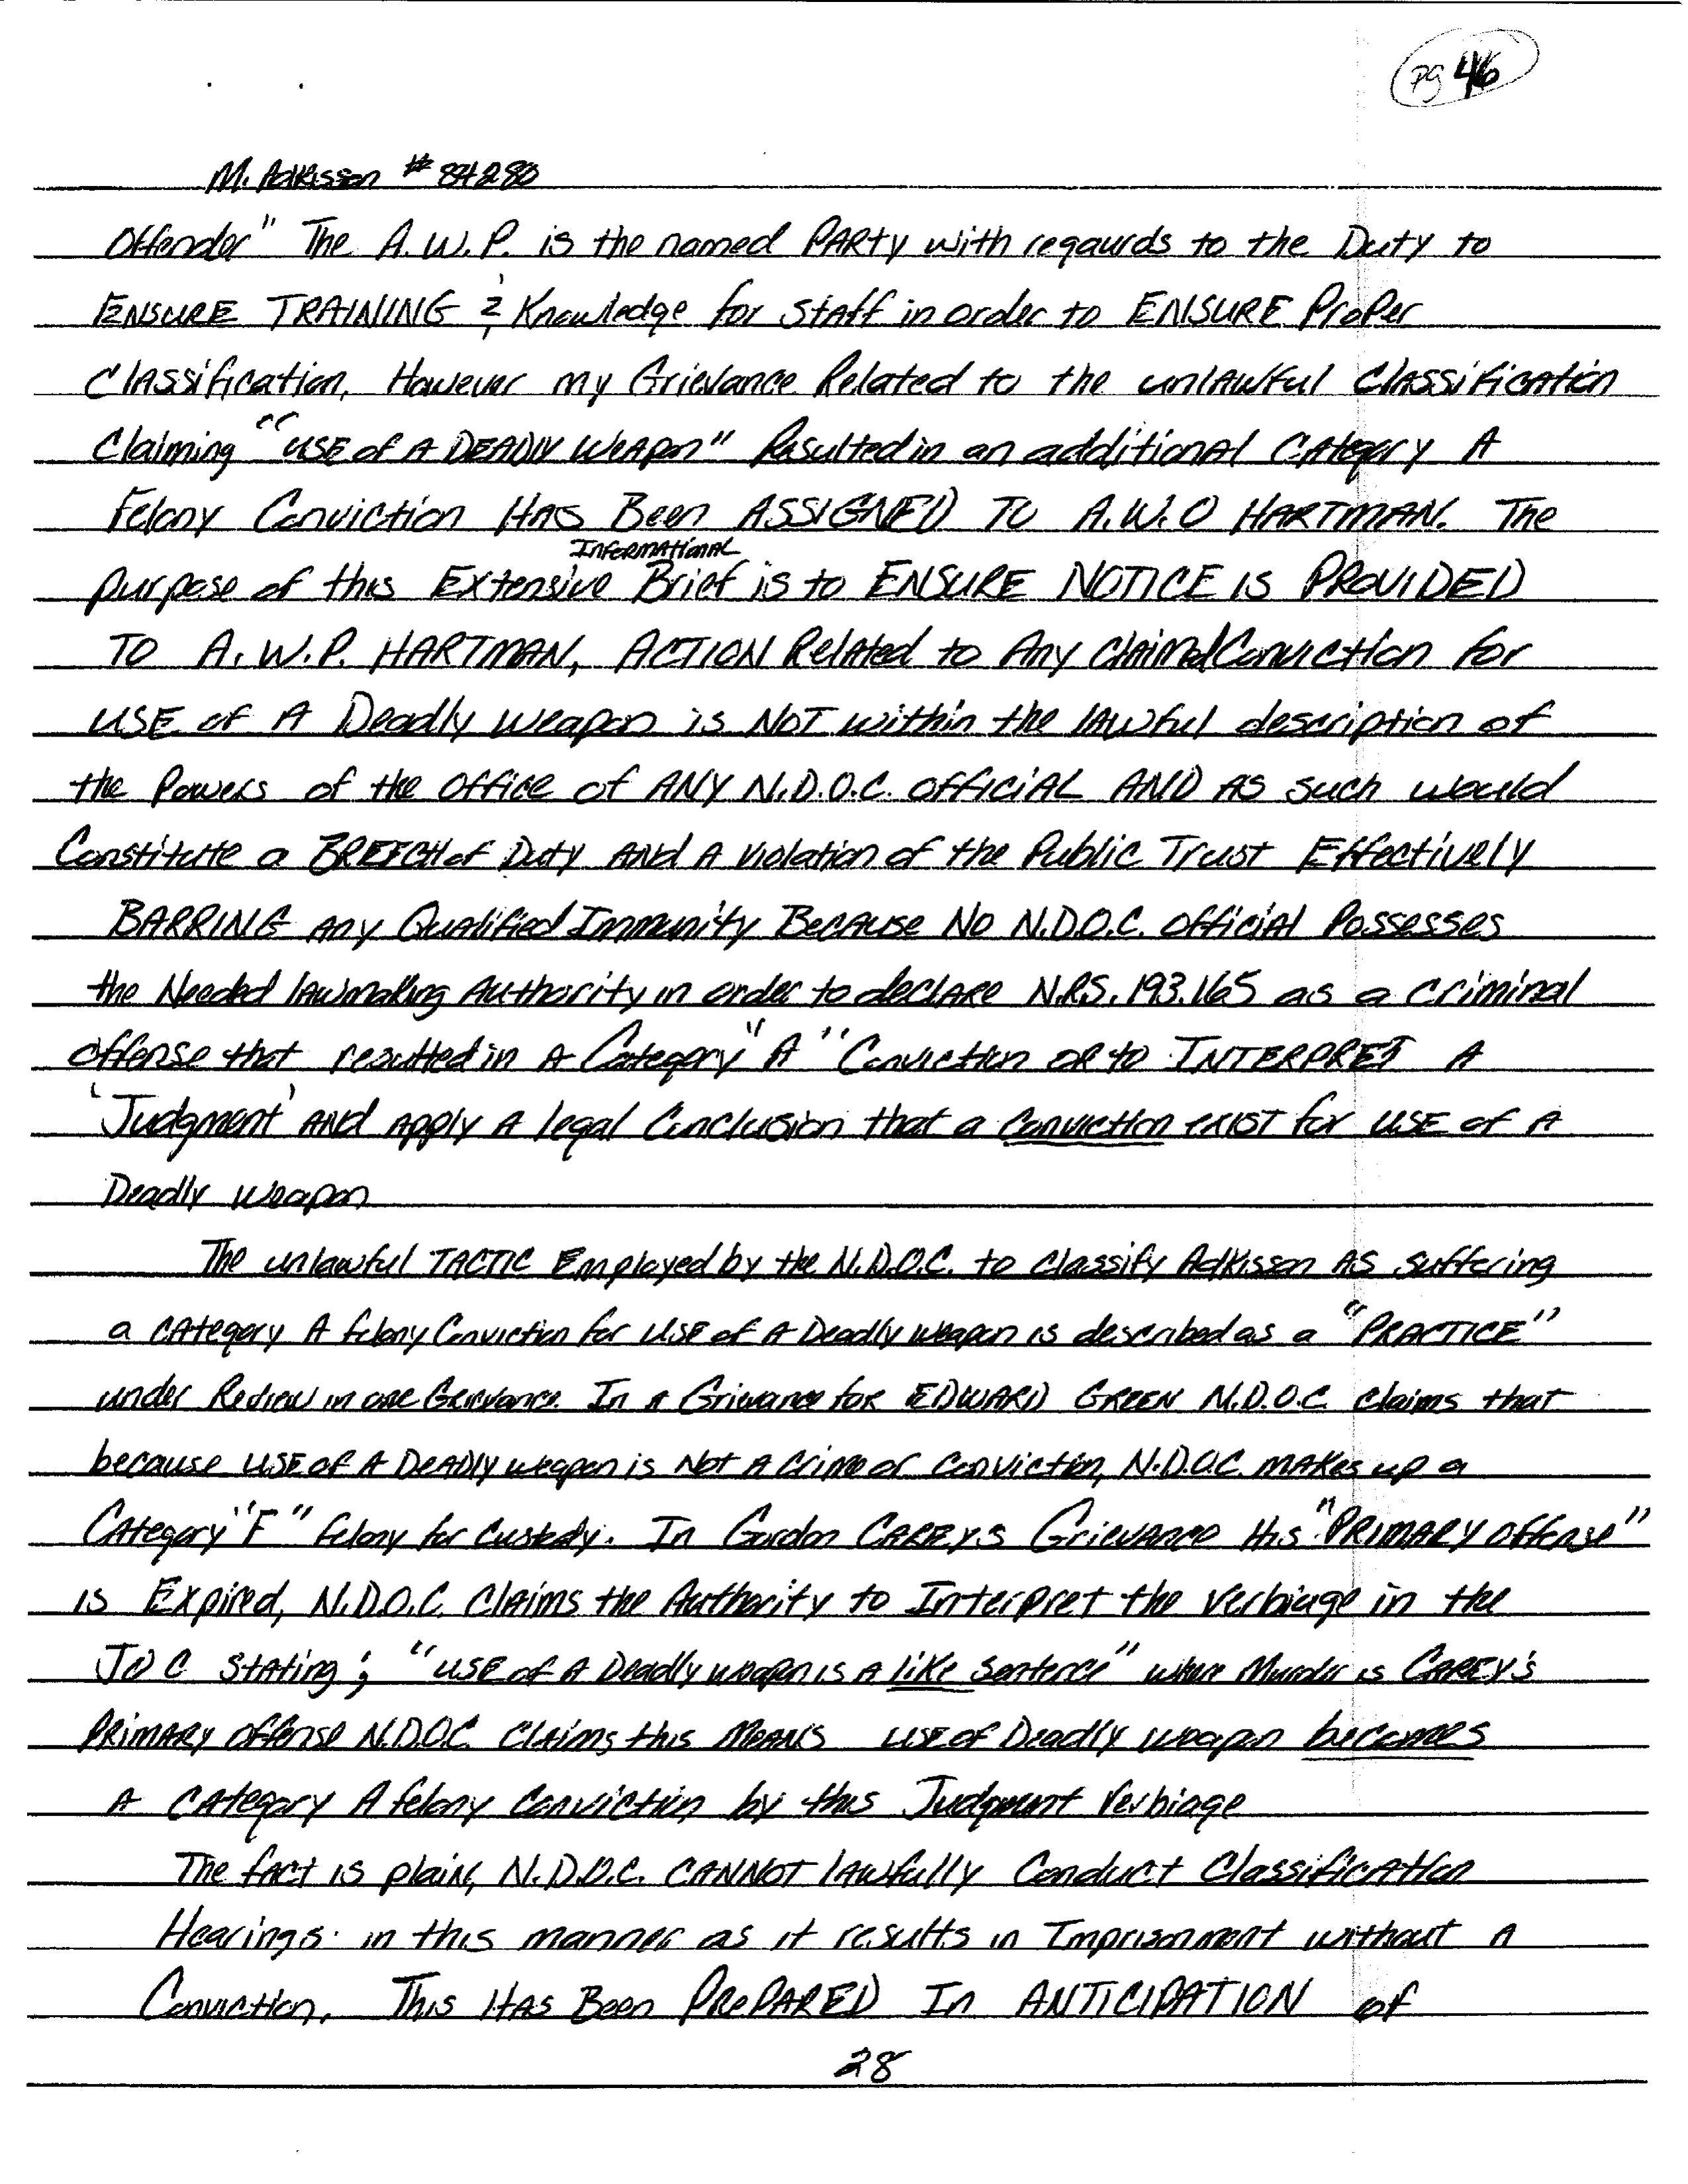 pg 46
M. Adkisson # 84280
Offender" The A.W.P. is the named PARty with regaurds to the Duty to
ENSURE TRAINING & Knowledge for Staff in order to ENSURE Proper
Classification, However my Grievance Related to the unlAwful Classification
Claiming "USE of A DEADLY WEAPON" Resulted in an additional Category A
Felony Conviction HAS Been ASSIGNED TO A.W.O HARTMAN. The
Informational
purpose of this Extensive Brief is to ENSURE NOTICE IS PROVIDED
TO A.W.P. HARTMAN, ACTION Related to Any Claimed Conviction for
USE of A Deadly Weapon is NOT within the lAwful description of
the Powers of the Office of ANY N.D.O.C. OfficiAL AND AS such would
Constitute a BREECH of Duty And A Violation of the Public Trust Effectively
BARRING Any Qualified Immunity BecAuse No N.D.O.C. Official Possesses
the Needed lAwmaking Authority in order to declARe N.R.S. 193.165 as a criminal
offense that resulted in A Category "A" Conviction OR to INTERPRET A
'Judgment' AND Apply A legal Conclusion that a Conviction exist for USE of A
Deadly Weapon
The unlawful TACTIC Employed by the N.D.O.C. to Classify Adkisson AS suffering
a CAtegory A felony Conviction for Use of A Deadly Weapon is described as a "PRACTICE"
under Review in one Grievance. In A Grievance for EDWARD GREEN N.D.O.C. Claims that
because USE of A DEADly weapon is Not A Crime or Conviction, N.D.O.C. MAKes up a
CAtegory "F" felony for Custody. In Gordon CAREY.S GrievAnce His "PRIMARY Offense"
is Expired, N.D.O.C. Claims the Authority to Interpret the Verbiage in the
JOC Stating; "USE of A Deadly weapon is A like Sentence" when Murder is CAREY's
PRIMARY Offense N.D.O.C. Claims this MEANS USE of Deadly weapon becomes
A CAtegory A felony Conviction by this Judgment Verbiage
The fact is plain, N.D.O.C. CANNOT lAwfully Conduct Classification
Hearings in this manner as it results in Imprisonment without A
Conviction. This HAs Been PrePARED In ANTICIPATION of
28